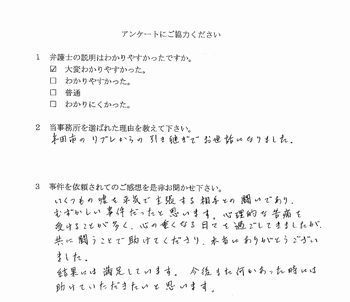 アンケートにご協力ください
1 弁護士の説明はわかりやすかったですか。
☑ 大変わかりやすかった。
□ わかりやすかった。
□ 普通
□ わかりにくかった。
2 当事務所を選ばれた理由を教えて下さい。
からの引き継ぎでお世話になりました。
3 事件を依頼されてのご感想を是非お聞かせ下さい。
いくつもの嘘を平気で主張する相手との闘いであり、
むずかしい事件だったと思います。心理的な苦痛を
受けることが多く、心の重くなる日々を過ごしてきましたが、
共に闘うことで助けてくださり、本当にありがとうござい
ました。
結果には満足しています。今後また何かあった時には
助けていただきたいと思います。